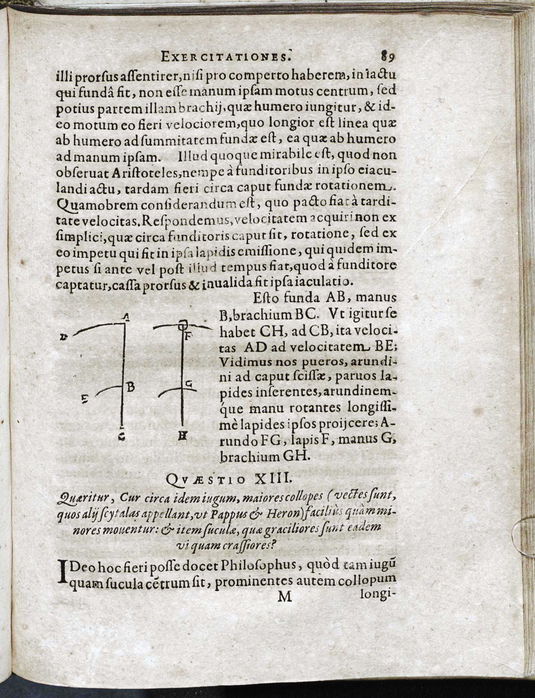 EXERCITATIONES. 89
illi prorsus assentirer, nisi pro comperto haberem, in iactu
qui fundâ fit, non esse manum ipsam motus centrum, sed
potius partem illam brachij, quæ humero iungitur, & id-
eo motum eo fieri velociorem, quo longior est linea quæ
ab humero ad summitatem fundæ est, ea quæ ab humero
ad manum ipsam. Illud quoque mirabile est, quod non
obseruat Aristoteles, nempe à funditoribus in ipso eiacu-
landi actu, tardam fieri circa caput fundæ rotationem.
Quamobrem considerandum est, quo pacto fiat à tardi-
tate velocitas. Respondemus, velocitatem acquiri non ex
simplici, quæ circa funditoris caput fit, rotatione, sed ex
eo impetu qui fit in ipsa lapidis emissione, qui quidem im-
petus si ante vel post illud tempus fiat, quod à funditore
captatur, cassa prorsus & inualida fit ipsa iaculatio.
Esto funda AB, manus
B, brachium BC. Vt igitur se
habet CH, ad CB, ita veloci-
tas AD ad velocitatem BE;
Vidimus nos pueros, arundi-
ni ad caput scissæ, paruos la-
pides inserentes, arundinem-
que manu rotantes longissi-
mè lapides ipsos proijcere; A-
rundo FG, lapis F, manus G,
brachium GH.
A
D
B
E
C
F
G
H
QVÆSTIO XIII.
Quæritur, Cur circa idem iugum, maiores collopes (vectes sunt,
quos alij scytalas appellant, vt Pappus & Heron) facilius quàm mi-
nores mouentur: & item suculæ, quæ graciliores sunt eadem
vi quam crassiores?
IDeo hoc fieri posse docet Philosophus, quòd tam iugũ
quam sucula cẽtrum sit, prominentes autem collopum
M longi-